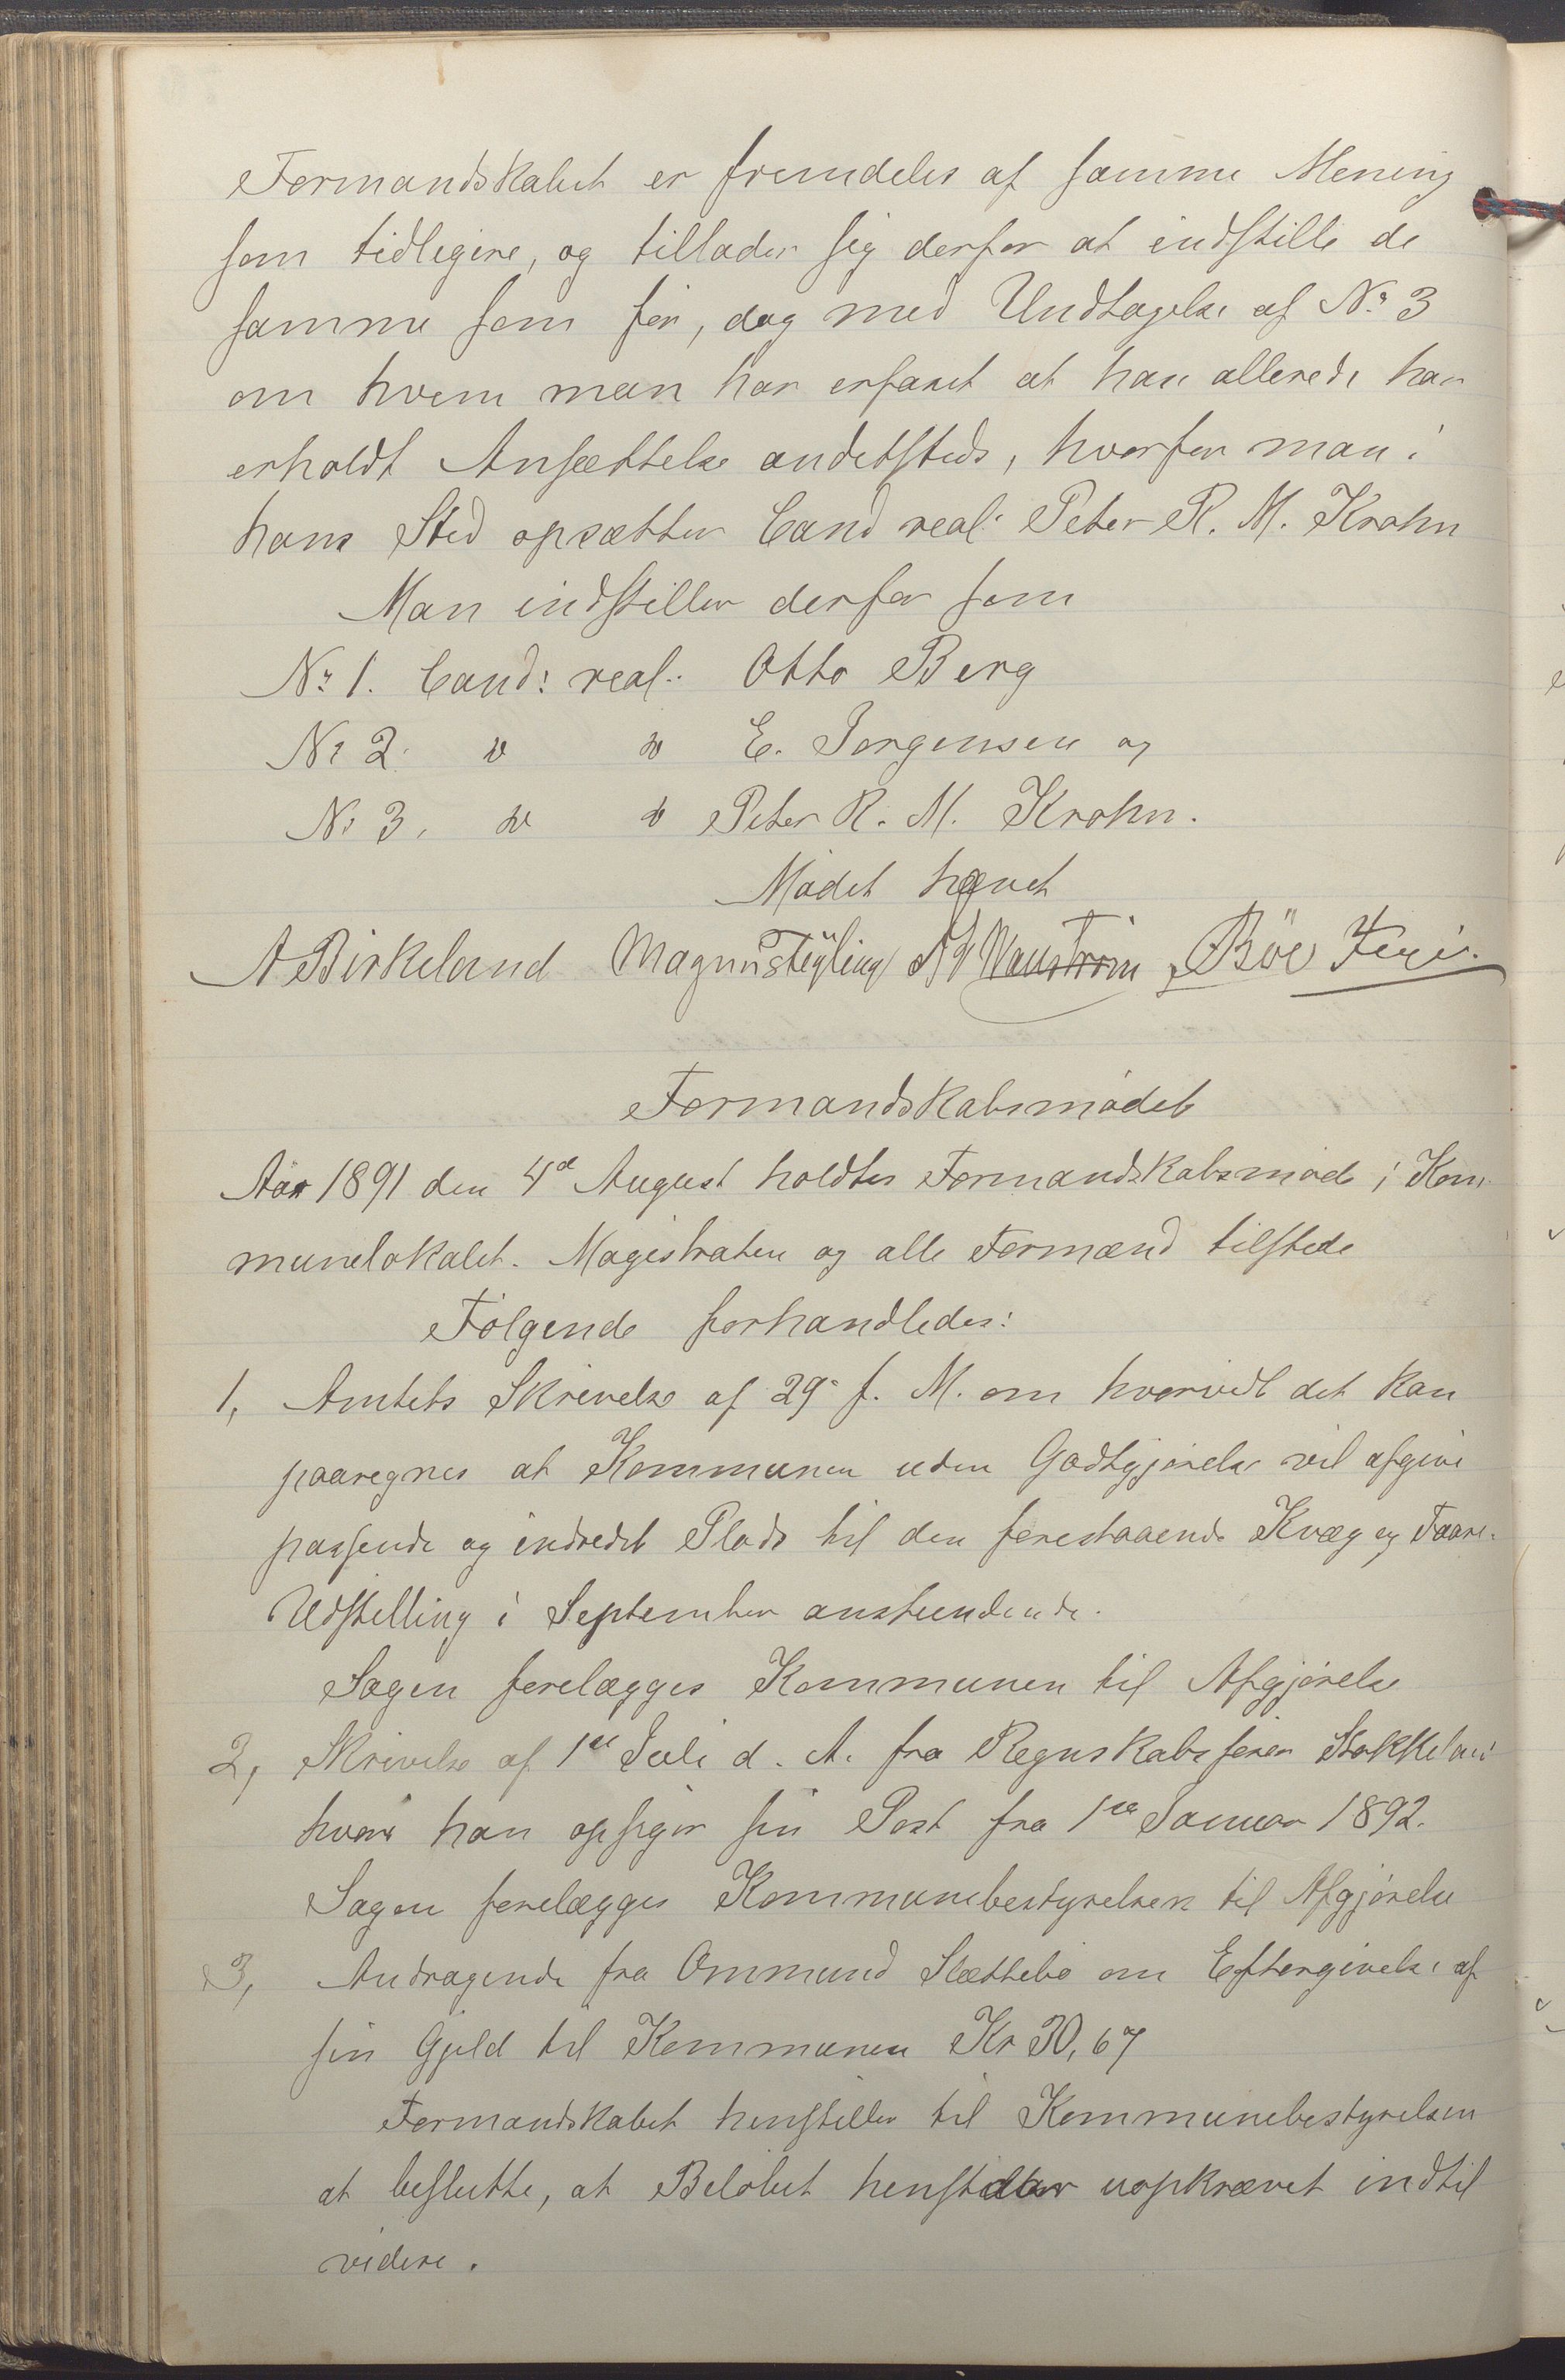 Formandskabet er fremdeles af samme Mening
som tidligere, og tillader sig derfor at indstille de
samme som før, dog med Undtagelse af No 3
om hvem man har erfaret at han allerede har
erholdt Ansættelse andetsteds, hvorfor man i
hans Sted opsætter Cand real: Peter R. M. Krohn
Man indstiller derfor som
No 1. Cand: real: Otto Berg
No 2. " " E. Jørgensen og
No 3, " " Peter R. M. Krohn.
Mødet hævet
A Birkeland Magnus Bøe
Formandskabsmødet
Aar 1891 den 4d August holdtes Formandskabsmøde i Kom-
munelokalet. Magistraten og alle Formænd tilstede
Følgende forhandledes:
1, Amtets Skrivelse af 29: f. M. om hvorvidt det kan
paaregnes at Kommunen uden Godtgjørelse vil afgive
passende og indredet Plads til den forestaaende Kvæg og Faare-
Udstilling i September anstundende.
Sagen forelægges Kommunen til Afgjørelse
2, Skrivelse af 1ste Juli d. A. fra Regnskabsfører Stokkeland
hvori han opsiger sin Post fra 1ste Januar 1892.
Sagen forelægges Kommunebestyrelsen til Afgjørelse
3, Andragende fra Ommund Slættebø om Eftergivelse af
sin Gjeld til Kommunen Kr 30,67
Formandskabet henstiller til Kommunebestyrelsen
at beslutte, at Beløbet henstaar uopkrævet indtil
videre.